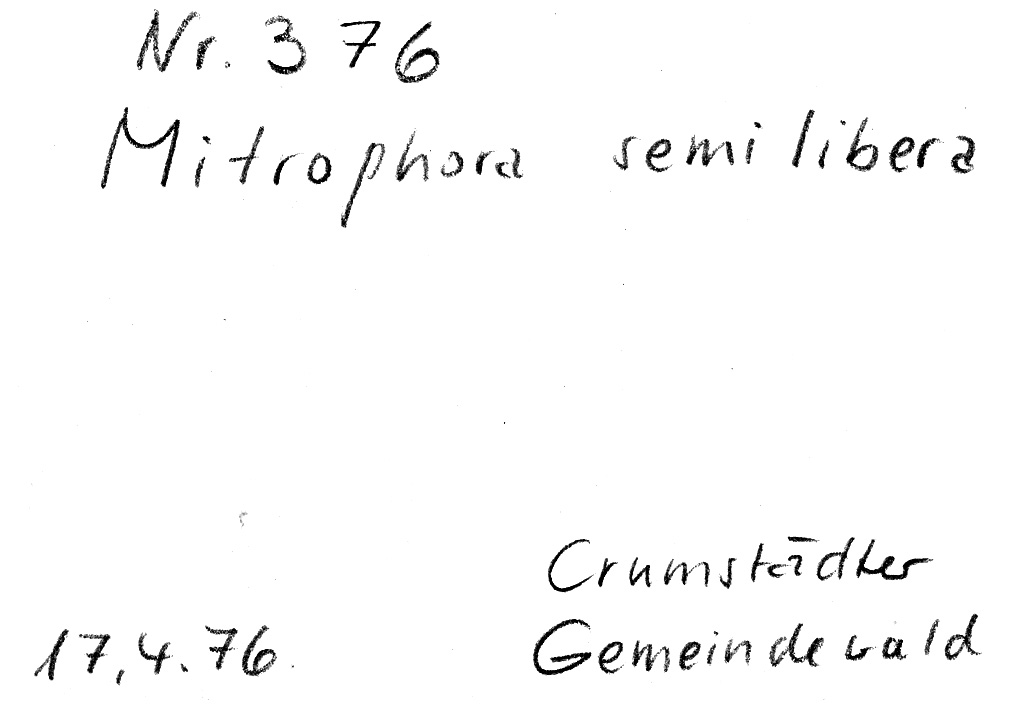 Nr. 376
Mitrophora semilibera
Crumstädter
17.4.76 Gemeindewald